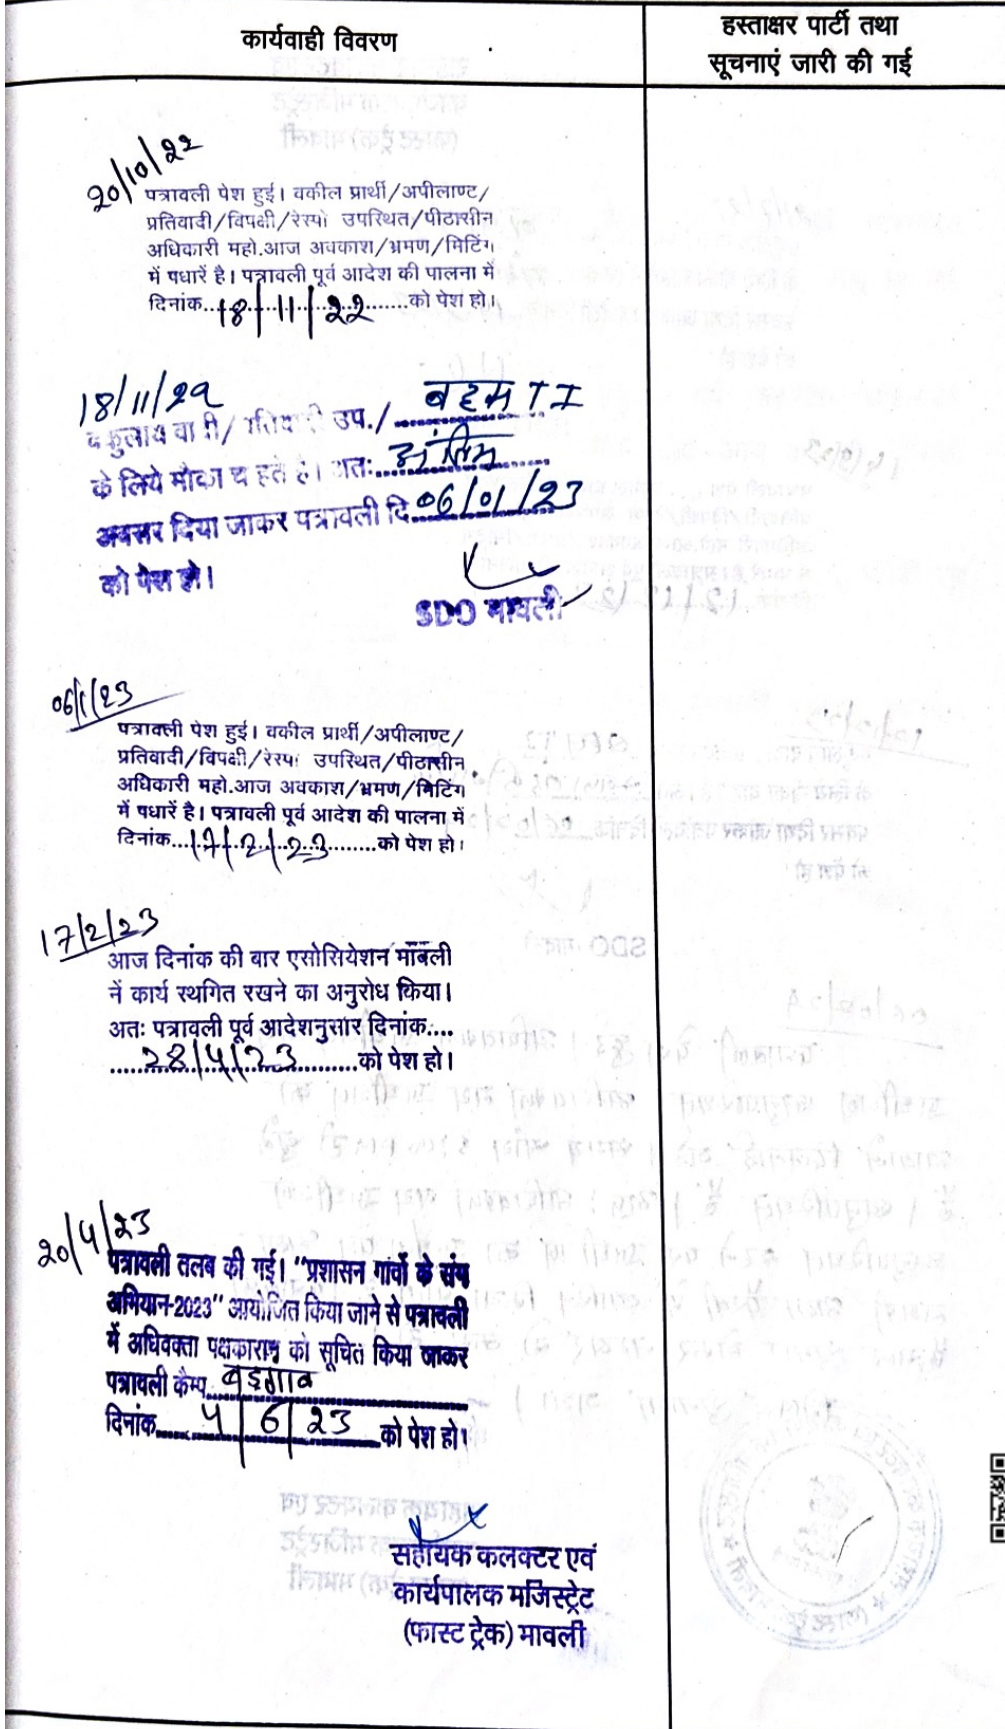 कार्यवाही विवरण
हस्ताक्षर पार्टी तथा
सूचनाएं जारी की गई
20/10/22
पत्रावली पेश हुई। वकील प्रार्थी/अपीलाण्ट/
प्रतिवादी/विपक्षी/रेस्पो उपस्थित/पीठासीन
अधिकारी महो.आज अवकाश/भ्रमण/मिटिंग
में पधारें है। पत्रावली पूर्व आदेश की पालना में
दिनांक..18/11/22......को पेश हो।
18/11/22
उप./ बहस T I
के लिये मौका चाहते है। अतः अंतिम
अवसर दिया जाकर पत्रावली दि. 06/01/23
को पेश हो।
SDO मावली
06/1/23
पत्रावली पेश हुई। वकील प्रार्थी/अपीलाण्ट/
प्रतिवादी/विपक्षी/रेस्पो उपस्थित/पीठासीन
अधिकारी महो.आज अवकाश/भ्रमण/मिटिंग
में पधारें है। पत्रावली पूर्व आदेश की पालना में
दिनांक...17/2/23........को पेश हो।
17/2/23
आज दिनांक की बार एसोसियेशन मावली
नें कार्य स्थगित रखने का अनुरोध किया।
अतः पत्रावली पूर्व आदेशनुसार दिनांक....
....28/4/23............को पेश हो।
20/4/23
पत्रावली तलब की गई। "प्रशासन गांवों के संग
अभियान-2023" आयोजित किया जाने से पत्रावली
में अधिवक्ता पक्षकारान को सूचित किया जाकर
पत्रावली कैम्प..बडगाव
दिनांक.....4/6/23 को पेश हो।
सहायक कलक्टर एवं
कार्यपालक मजिस्ट्रेट
(फास्ट ट्रेक) मावली